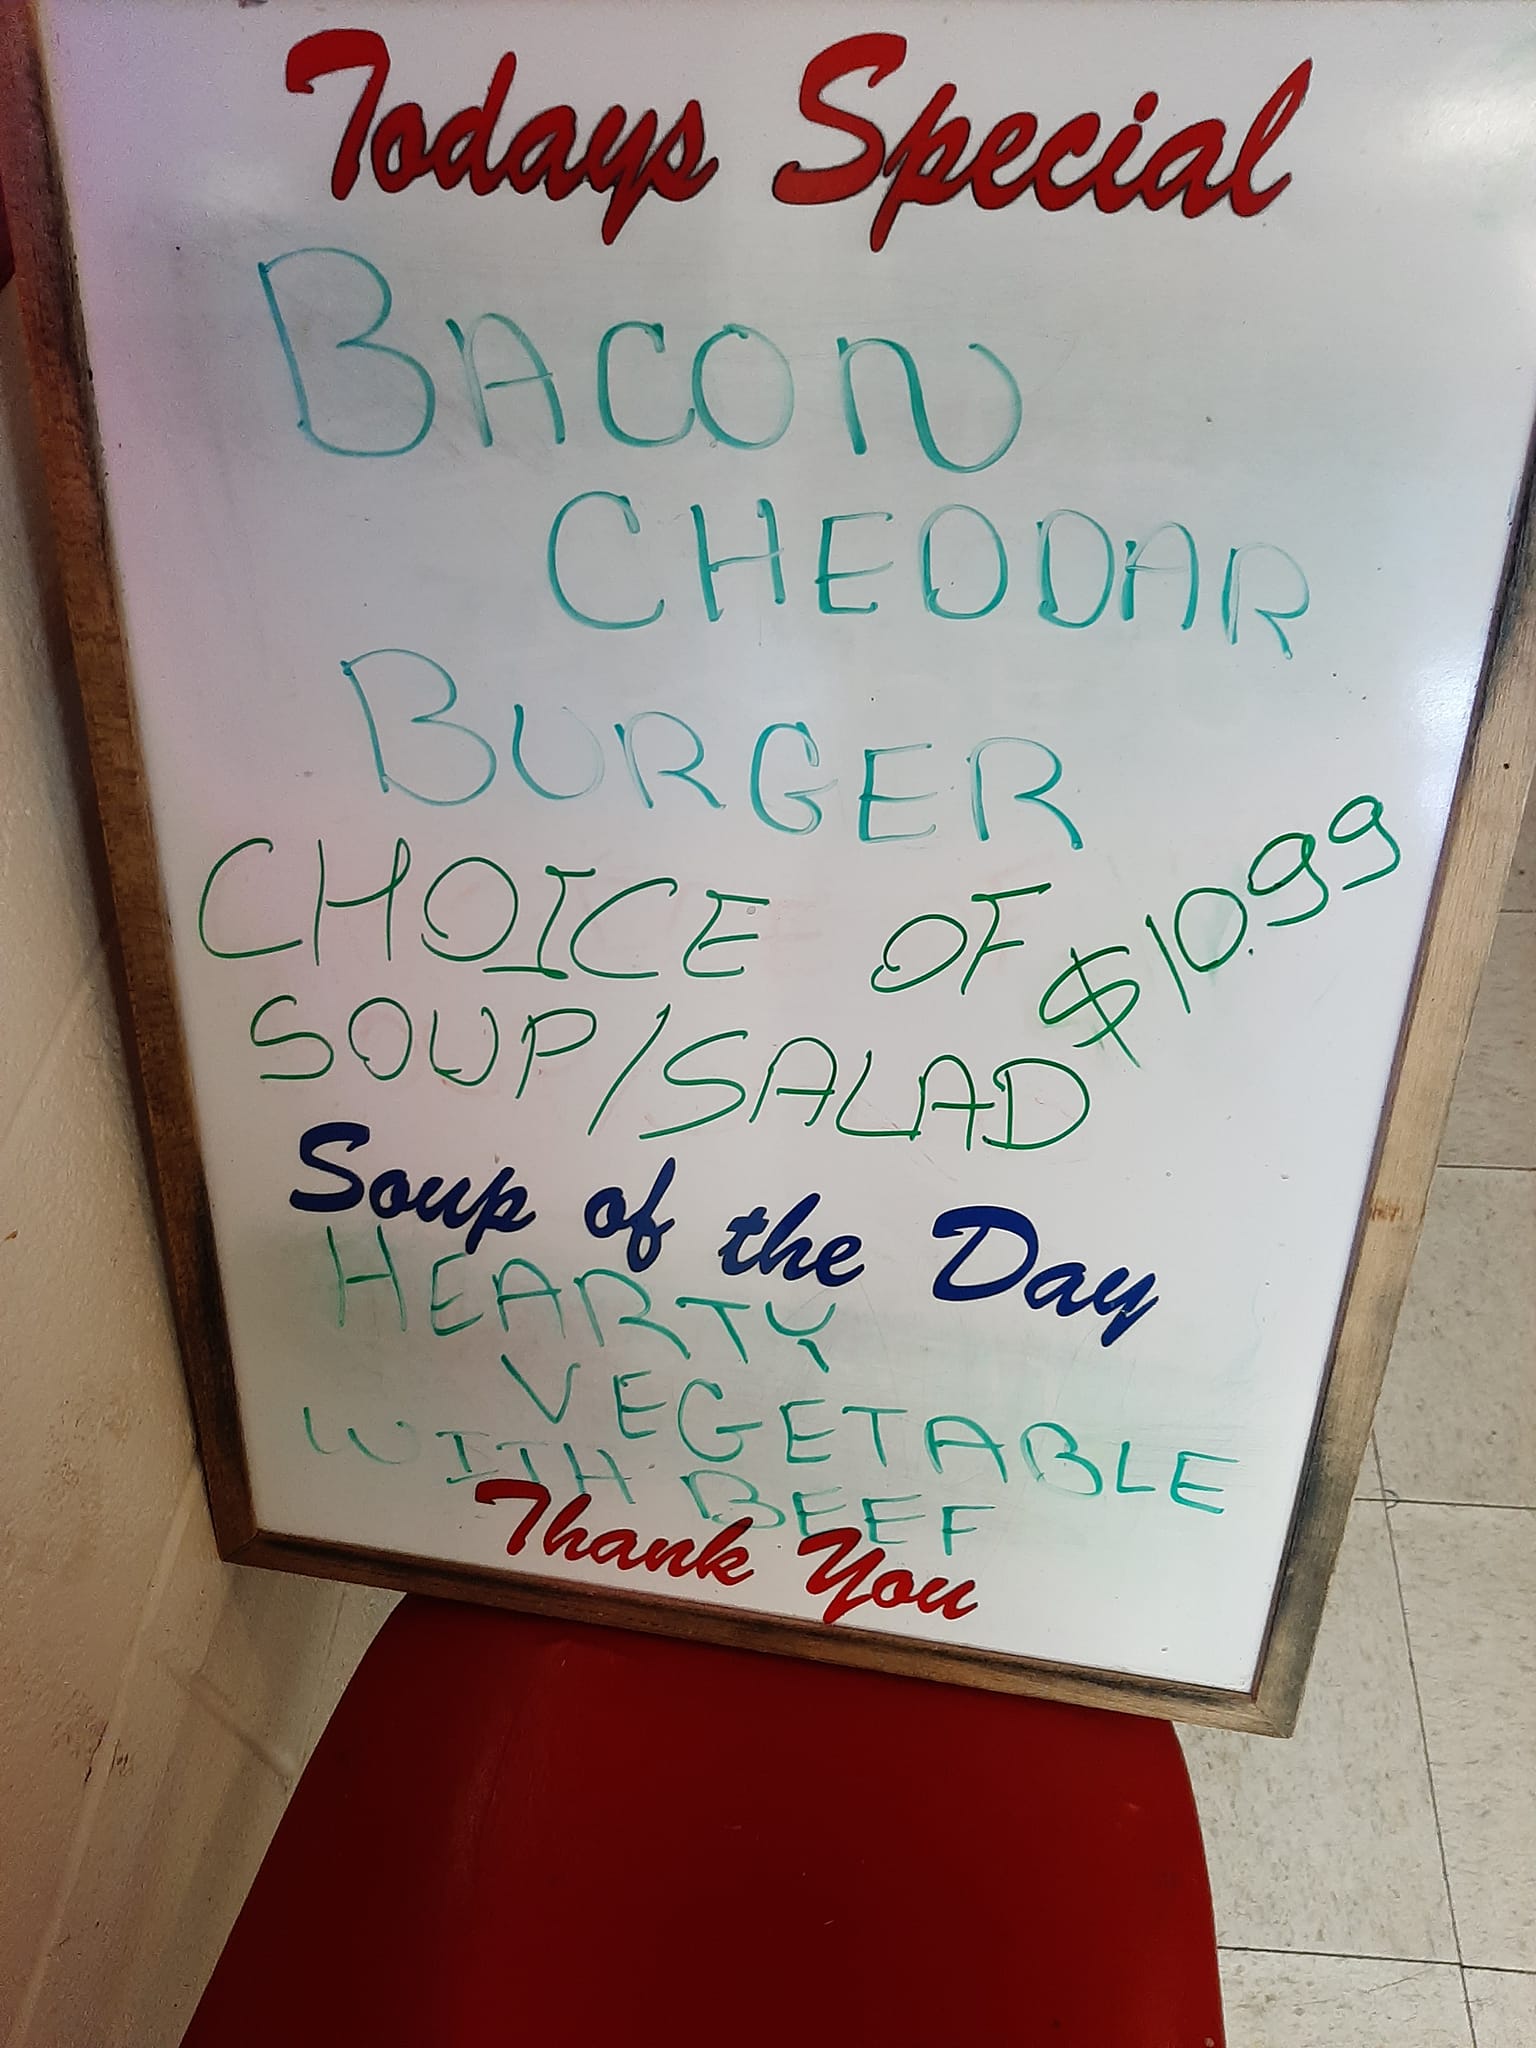 Todays Special
BACON
CHEDDAR
BURGER
CHOICE OF $10.99
SOUP/SALAD
Soup of the Day
HEARTY
VEGETABLE
WITH BEEF
Thank You